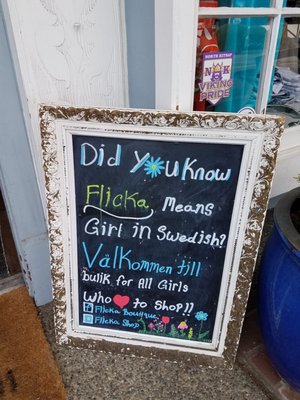 Did You Know
Flicka Means
Girl in Swedish?
Välkommen till
butik for All Girls
Who to Shop!!
Flicka Boutique
Flicka Shop
NORTH KITSAP
NK
VIKING
PRIDE